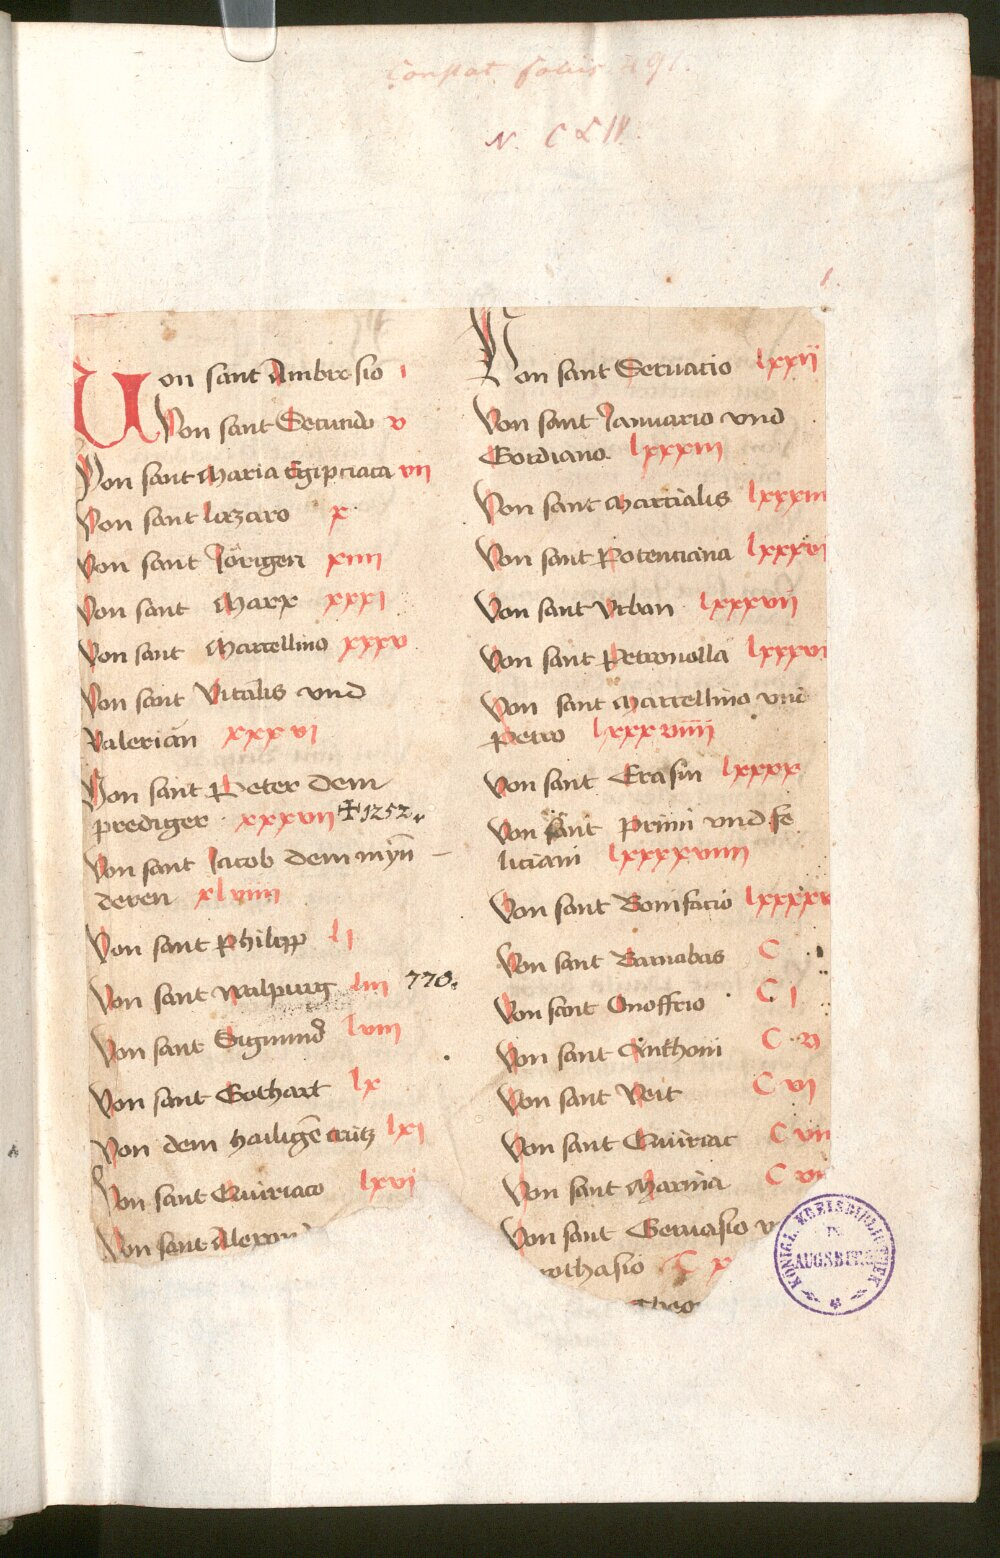 Constat foliis 291.
N. CLIV.
1.
Von sant Ambrosio i
Von sant Secundo v
Von sant Maria Egipciaca vii
Von sant lazaro x
Von sant Jörigen xiiii
Von sant Marx xxxi
Von sant Marcellino xxxv
Von sant Vitalis vnd
Valerian xxxvi
Von sant Peter dem
prediger xxxvii ✝1252.
Von sant Jacob dem myn̄
deren xlviiii
Von sant Philipp li
Von sant walpurg liiii 770.
Von sant Sigmund lviii
Von sant Gothart lx
Von dem hailigē crütz lxi
Von sant Quiriaco lxvi
Von sant Alexan
Von sant Seruacio lxxii
Von sant Januario vnd
Gordiano lxxxiii
Von sant Marcialis lxxxiii
Von sant Potenciana lxxxvi
Von sant Vrban lxxxvii
Von sant Petronolla lxxxvi
Von sant Marcellino vnd
Petro lxxxviiii
Von sant Erasm lxxxx
Von sant Primi vnd fe
liciani lxxxxviiii
Von sant Bonifacio lxxxxv
Von sant Barnabas C
Von sant Onoffrio C i
Von sant Anthoni C v
Von sant Veit C vi
Von sant Quiriac C vii
Von sant Marina C vi
Von sant Geruasio v
othasio C x
KÖNIGL. KREISBIBLIOTHEK
IN
AUGSBURG